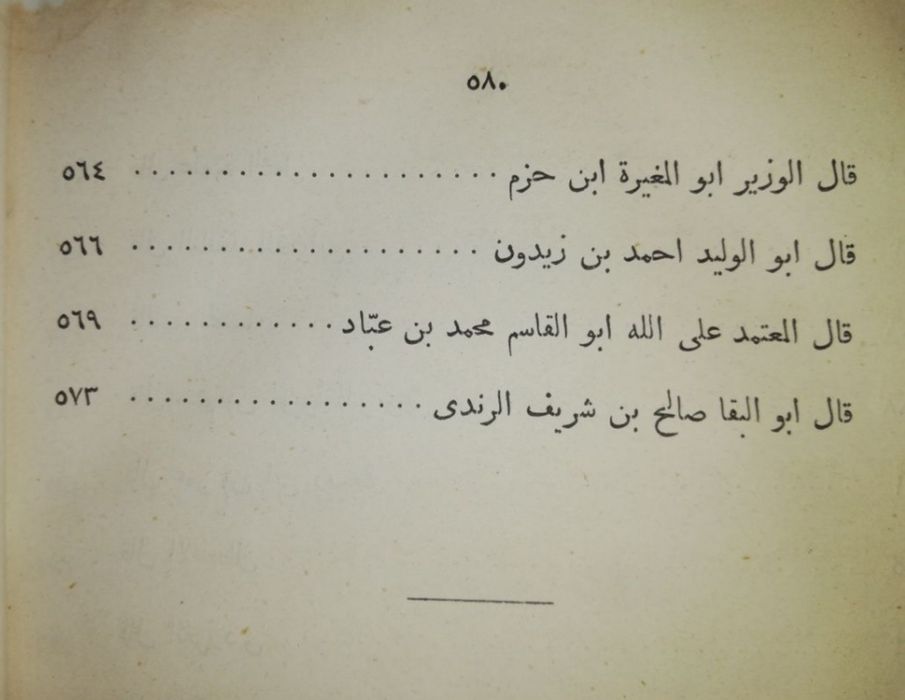 ٥٨٠
قال الوزير ابو المغيرة ابن حزم ...................... ٥٦٤
قال ابو الوليد احمد بن زيدون .................... ٥٦٦
قال المعتمد على الله ابو القاسم محمد بن عبّاد ............ ٥٦٩
قال ابو البقا صالح بن شريف الرندى ................. ٥٧٣